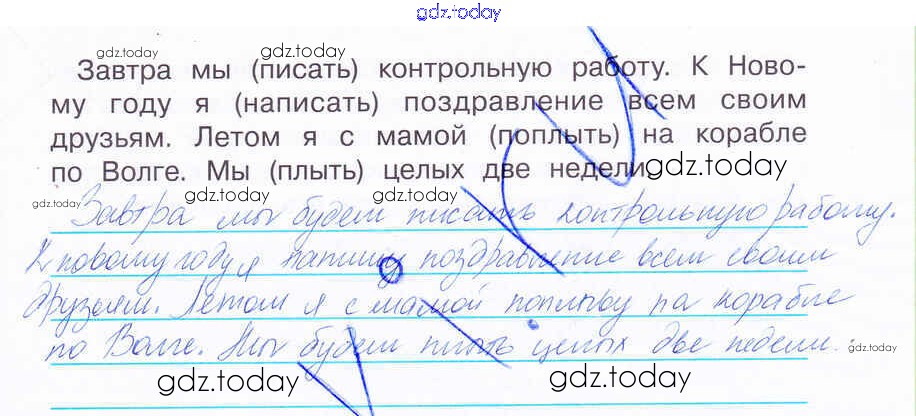 gdz.today
gdz.today
gdz.today
Завтра мы (писать) контрольную работу. К Ново-
му году я (написать) поздравление всем своим
gdz.today
друзьям. Летом я с мамой (поплыть) на корабле
по Волге. Мы (плыть) целых две недели.
gdz.today
gdz.today
gdz.today
gdz.today
Завтра мы будем писать контрольную работу.
К новому году я напишу поздравление всем своим
друзьям. Летом я с мамой поплыву на корабле
по Волге. Мы будем плыть целых две недели.
gdz.today
gdz.today
gdz.today